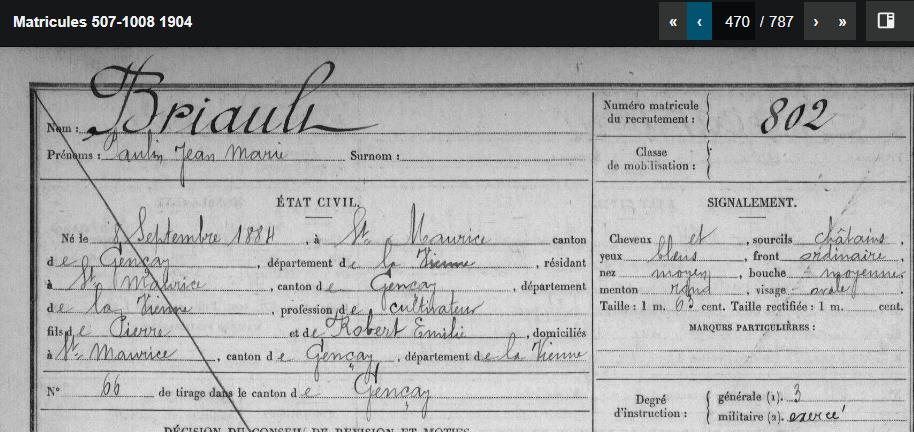 Matricules 507-1008 1904
« ‹ 470 / 787 › »
Briault
Nom :
Prénoms : Paulin Jean Marie Surnom :
ÉTAT CIVIL.
Né le 8 Septembre 1884, à St. Maurice canton
de Gençay, département de la Vienne, résidant
à St. Maurice, canton de Gençay, département
de la Vienne, profession de cultivateur
fils de Pierre et de Robert Emilie, domiciliés
à St. Maurice, canton de Gençay, département de la Vienne
N° 66 de tirage dans le canton de Gençay
DÉCISION DU CONSEIL DE REVISION ET MOTIFS
Numéro matricule
du recrutement : 802
Classe
de mobilisation :
SIGNALEMENT.
Cheveux et, sourcils châtains,
yeux bleus, front ordinaire,
nez moyen, bouche moyenne,
menton rond, visage ovale,
Taille : 1 m. 63 cent. Taille rectifiée : 1 m. cent.
MARQUES PARTICULIÈRES :
Degré
d'instruction :
générale (1). 3
militaire (2). exercé